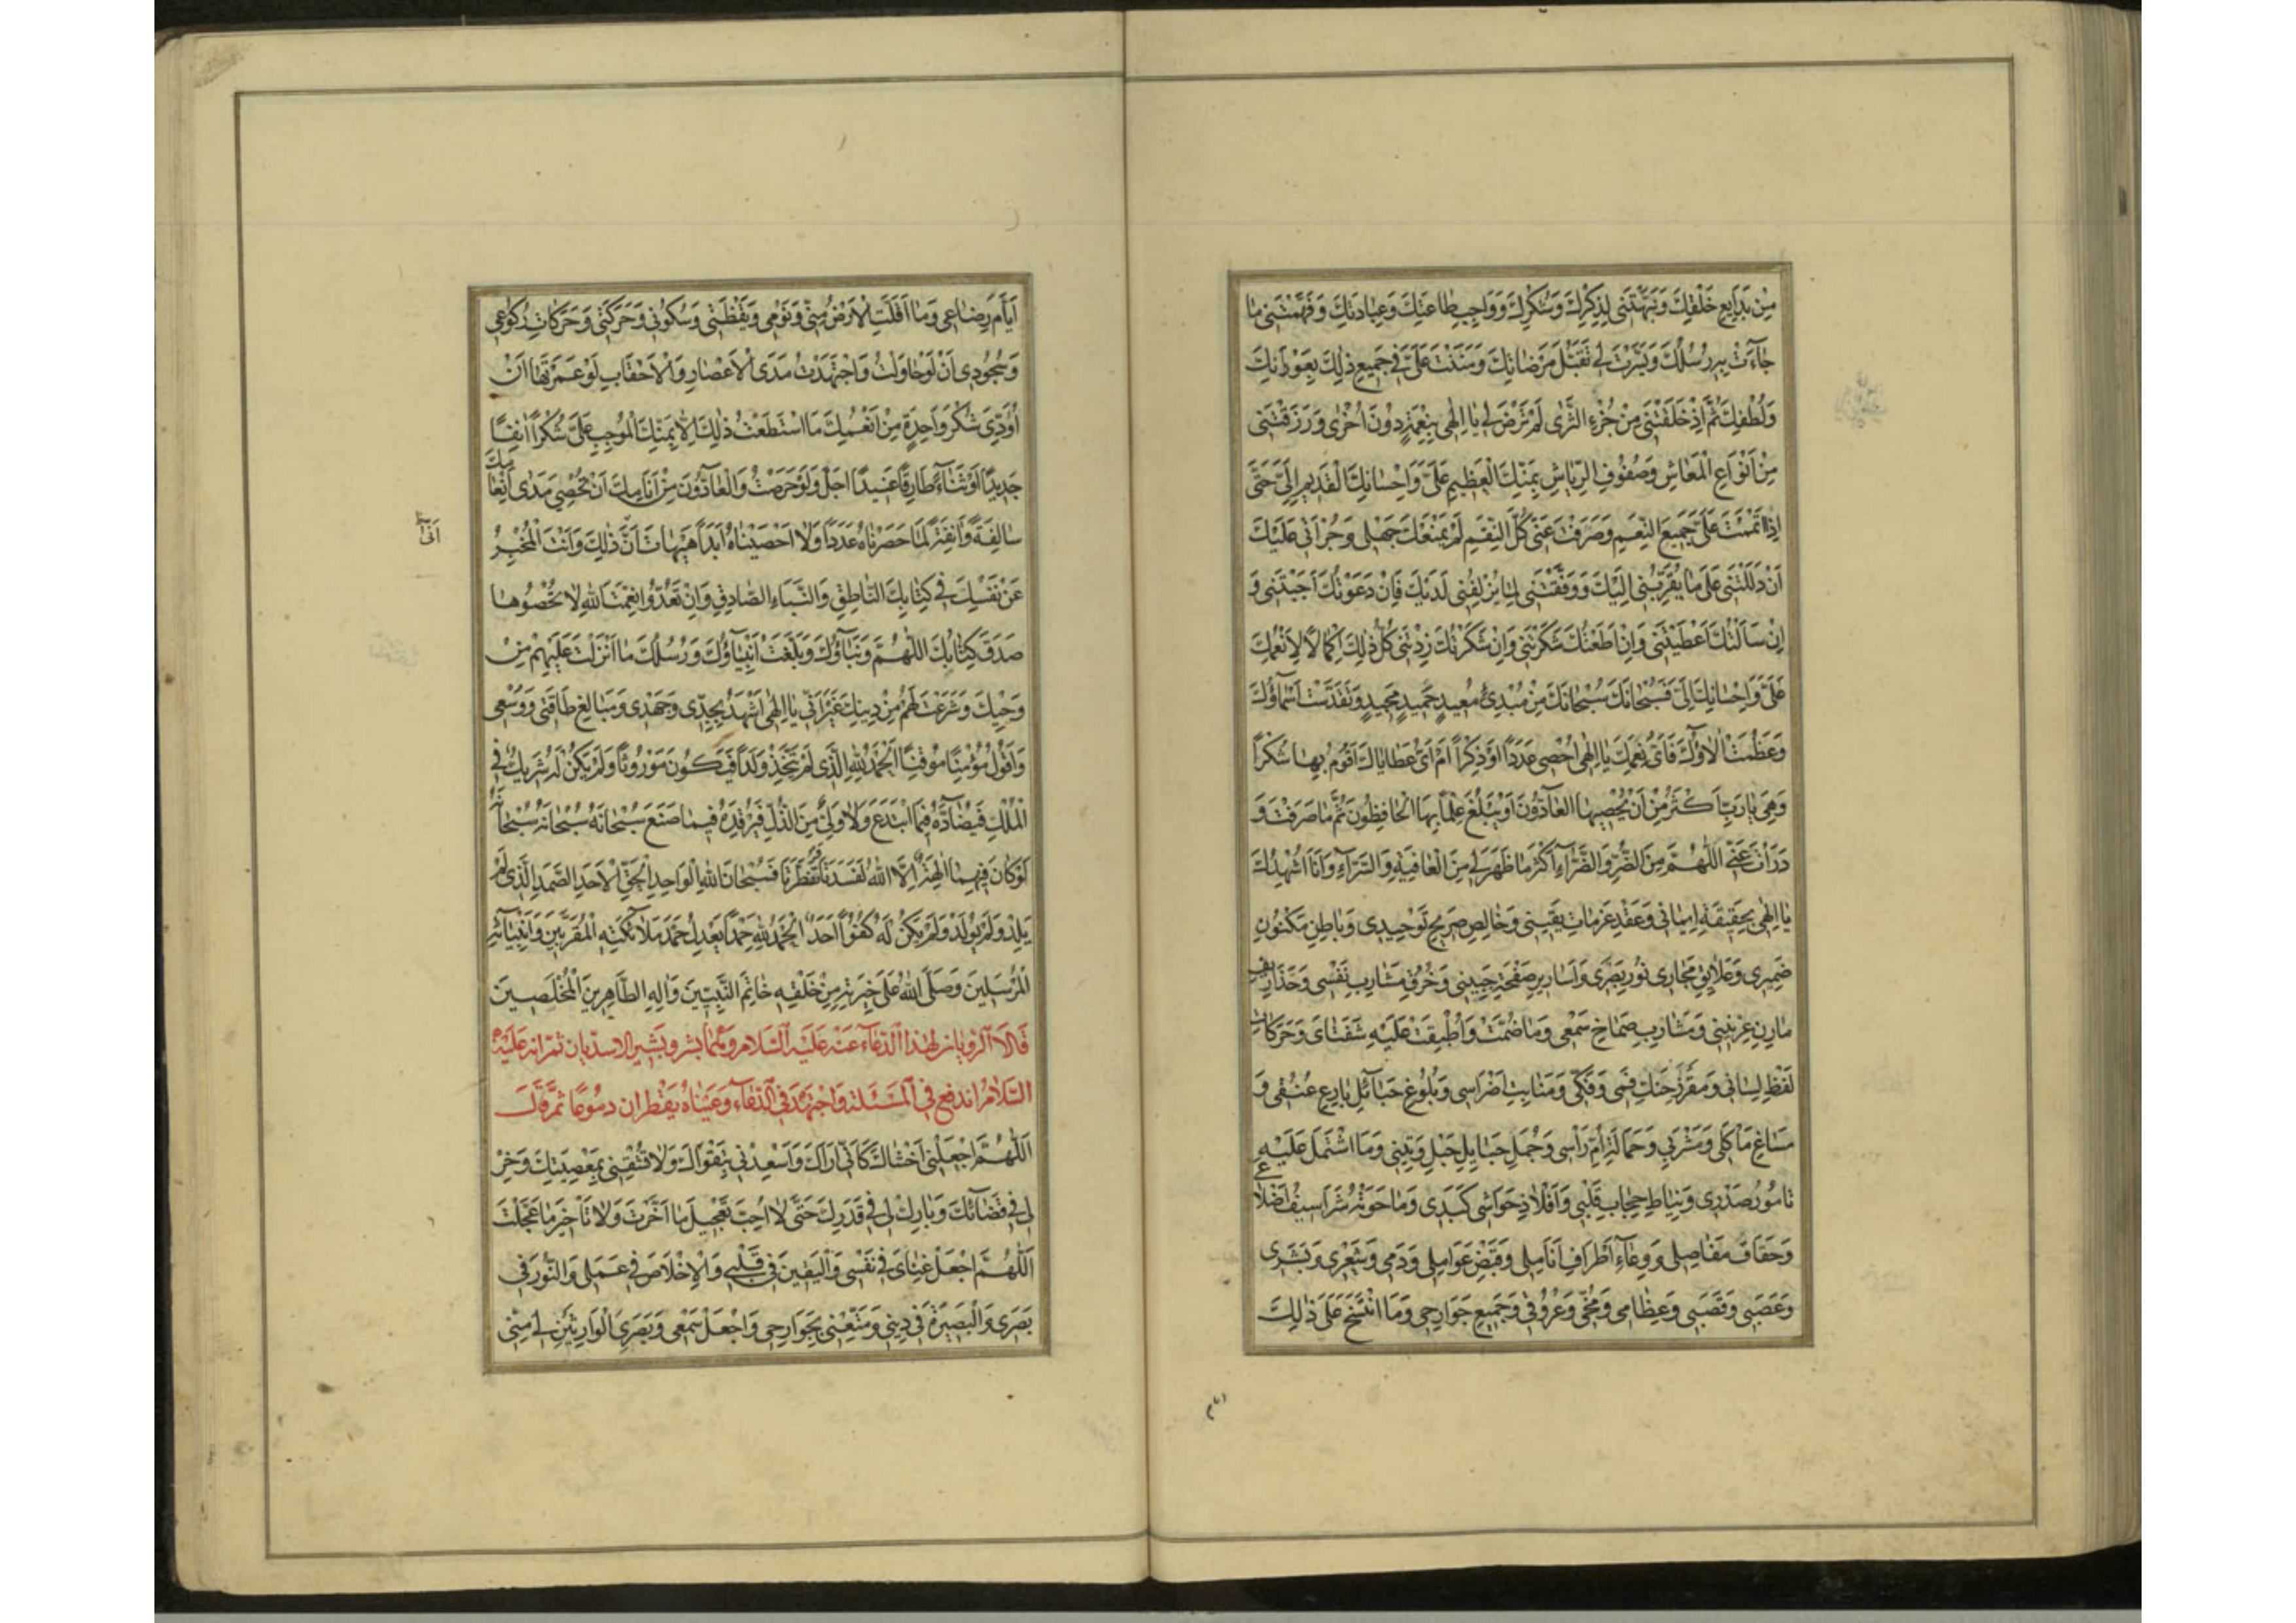 مِنْ بَدَايِعِ خَلْقِكَ وَنَبَّهْتَنِي لِذِكْرِكَ وَشُكْرِكَ وَوَاجِبِ طَاعَتِكَ وَعِبَادَتِكَ وَفَهَّمْتَنِي مَا
جَآءَتْ بِهِ رُسُلُكَ وَيَسَّرْتَ لِي تَقَبُّلَ مَرْضَاتِكَ وَمَنَنْتَ عَلَيَّ فِي جَمِيعِ ذٰلِكَ بِعَوْنِكَ
وَلُطْفِكَ ثُمَّ اِذْ خَلَقْتَنِي مِنْ حُرِّ الثَّرٰى لَمْ تَرْضَ لِي يَا اِلٰهِي بِنِعْمَةٍ دُونَ اُخْرٰى وَرَزَقْتَنِي
مِنْ اَنْوَاعِ الْمَعَاشِ وَصُنُوفِ الرِّيَاشِ بِمَنِّكَ الْعَظِيمِ عَلَيَّ وَاِحْسَانِكَ الْقَدِيمِ اِلَيَّ حَتّٰى
اِذَا اَتْمَمْتَ عَلَيَّ جَمِيعَ النِّعَمِ وَصَرَفْتَ عَنِّي كُلَّ النِّقَمِ لَمْ يَمْنَعْكَ جَهْلِي وَجُرْاَتِي عَلَيْكَ
اَنْ دَلَلْتَنِي عَلٰى مَا يُقَرِّبُنِي اِلَيْكَ وَوَفَّقْتَنِي لِمَا يُزْلِفُنِي لَدَيْكَ فَاِنْ دَعَوْتُكَ اَجَبْتَنِي وَ
اِنْ سَاَلْتُكَ اَعْطَيْتَنِي وَاِنْ اَطَعْتُكَ شَكَرْتَنِي وَاِنْ شَكَرْتُكَ زِدْتَنِي كُلُّ ذٰلِكَ اِكْمَالًا لِاَنْعُمِكَ
عَلَيَّ وَاِحْسَانِكَ اِلَيَّ فَسُبْحَانَكَ سُبْحَانَكَ مِنْ مُبْدِئٍ مُعِيدٍ حَمِيدٍ مَجِيدٍ وَتَقَدَّسَتْ اَسْمَآؤُكَ
وَعَظُمَتْ اٰلَاؤُكَ فَاَيُّ نِعَمِكَ يَا اِلٰهِي اُحْصِي عَدَدًا اَوْ ذِكْرًا اَمْ اَيُّ عَطَايَاكَ اَقُومُ بِهَا شُكْرًا
وَهِيَ يَا رَبِّ اَكْثَرُ مِنْ اَنْ يُحْصِيهَا الْعَآدُّونَ اَوْ يَبْلُغَ عِلْمًا بِهَا الْحَافِظُونَ ثُمَّ مَا صَرَفْتَ وَ
دَرَاْتَ عَنِّي اَللّٰهُمَّ مِنَ الضُّرِّ وَالضَّرَّآءِ اَكْثَرُ مَا ظَهَرَ لِي مِنَ الْعَافِيَةِ وَالسَّرَّآءِ وَاَنَا اُشْهِدُكَ
يَا اِلٰهِي بِحَقِيقَةِ اِيمَانِي وَعَقْدِ عَزَمَاتِ يَقِينِي وَخَالِصِ صَرِيحِ تَوْحِيدِي وَبَاطِنِ مَكْنُونِ
ضَمِيرِي وَعَلَايِقِ مَجَارِي نُورِ بَصَرِي وَاَسَارِيرِ صَفْحَةِ جَبِينِي وَخُرْقِ مَسَارِبِ نَفْسِي وَخَذَارِيفِ
مَارِنِ عِرْنِينِي وَمَسَارِبِ صِمَاخِ سَمْعِي وَمَا ضُمَّتْ وَاُطْبِقَتْ عَلَيْهِ شَفَتَايَ وَحَرَكَاتِ
لَفْظِ لِسَانِي وَمَغْرَزِ حَنَكِ فَمِي وَفَكِّي وَمَنَابِتِ اَضْرَاسِي وَبُلُوغِ حَبَآئِلِ بَارِعِ عُنُقِي وَ
مَسَاغِ مَاْكَلِي وَمَشْرَبِي وَحَمَالَةِ اُمِّ رَاْسِي وَجُمَلِ حَبَايِلِ حَبْلِ وَتِينِي وَمَا اشْتَمَلَ عَلَيْهِ
تَامُورُ صَدْرِي وَنِيَاطِ حِجَابِ قَلْبِي وَاَفْلَاذِ حَوَاشِي كَبِدِي وَمَا حَوَتْهُ شَرَاسِيفُ اَضْلَاعِي
وَحِقَافِ مَفَاصِلِي وَوِعَآءِ اَطْرَافِ اَنَامِلِي وَقَبْضِ عَوَامِلِي وَدَمِي وَشَعْرِي وَبَشَرِي
وَعَصَبِي وَقَصَبِي وَعِظَامِي وَمُخِّي وَعُرُوقِي وَجَمِيعِ جَوَارِحِي وَمَا انْتَسَجَ عَلٰى ذٰلِكَ
ايام
اَيَّامَ رِضَاعِي وَمَا اَقَلَّتِ الْاَرْضُ مِنِّي وَنَوْمِي وَيَقْظَتِي وَسُكُونِي وَحَرَكَتِي وَحَرَكَاتِ رُكُوعِي
وَسُجُودِي اَنْ لَوْ حَاوَلْتُ وَاجْتَهَدْتُ مَدَى الْاَعْصَارِ وَالْاَحْقَابِ لَوْ عُمِّرْتُهَا اَنْ
اُؤَدِّيَ شُكْرَ وَاحِدَةٍ مِنْ اَنْعُمِكَ مَا اسْتَطَعْتُ ذٰلِكَ اِلَّا بِمَنِّكَ الْمُوجِبِ عَلَيَّ شُكْرًا اٰنِفًا
جَدِيدًا اَوْ ثَنَآءً طَارِقًا عَتِيدًا اَجَلْ وَلَوْ حَرَصْتُ وَالْعَآدُّونَ مِنْ اَنَامِكَ اَنْ نُحْصِيَ مَدٰى اِنْعَامِكَ
سَالِفَةً وَاٰنِفَةً لَمَا حَصَرْنَاهُ عَدَدًا وَلَا اَحْصَيْنَاهُ اَبَدًا هَيْهَاتَ اَنّٰى ذٰلِكَ وَاَنْتَ الْمُخْبِرُ
اَنّٰى
عَنْ نَفْسِكَ فِي كِتَابِكَ النَّاطِقِ وَالنَّبَاءِ الصَّادِقِ وَاِنْ تَعُدُّوا نِعْمَتَ اللهِ لَا تُحْصُوهَا
صَدَقَ كِتَابُكَ اللّٰهُمَّ وَنَبَآؤُكَ وَبَلَّغَتْ اَنْبِيَآؤُكَ وَرُسُلُكَ مَا اَنْزَلْتَ عَلَيْهِمْ مِنْ
وَحْيِكَ وَشَرَعْتَ لَهُمْ مِنْ دِينِكَ غَيْرَ اَنِّي يَا اِلٰهِي اَشْهَدُ بِجِدِّي وَجَهْدِي وَمَبَالِغِ طَاقَتِي وَوُسْعِي
وَاَقُولُ مُؤْمِنًا مُوقِنًا اَلْحَمْدُ لِلّٰهِ الَّذِي لَمْ يَتَّخِذْ وَلَدًا فَيَكُونَ مَوْرُوثًا وَلَمْ يَكُنْ لَهُ شَرِيكٌ فِي
الْمُلْكِ فَيُضَآدَّهُ فِيمَا ابْتَدَعَ وَلَا وَلِيٌّ مِنَ الذُّلِّ فَيُرْفِدَهُ فِيمَا صَنَعَ سُبْحَانَهُ سُبْحَانَهُ سُبْحَانَهُ
لَوْ كَانَ فِيهِمَا اٰلِهَةٌ اِلَّا اللهُ لَفَسَدَتَا وَتَفَطَّرَتَا فَسُبْحَانَ اللهِ الْوَاحِدِ الْحَقِّ الْاَحَدِ الصَّمَدِ الَّذِي لَمْ
يَلِدْ وَلَمْ يُولَدْ وَلَمْ يَكُنْ لَهُ كُفُوًا اَحَدٌ اَلْحَمْدُ لِلّٰهِ حَمْدًا يَعْدِلُ حَمْدَ مَلَآئِكَتِهِ الْمُقَرَّبِينَ وَاَنْبِيَآئِهِ
الْمُرْسَلِينَ وَصَلَّى اللهُ عَلٰى خِيَرَتِهِ مِنْ خَلْقِهِ خَاتَمِ النَّبِيِّينَ وَاٰلِهِ الطَّاهِرِينَ الْمُخْلَصِينَ
قَالَا الرَّاوِيَانِ لِهٰذَا الدُّعَآءِ عَنْهُ عَلَيْهِ السَّلَامُ وَهُمَا بِشْرٌ وَبَشِيرٌ الْاَسَدِيَّانِ ثُمَّ اِنَّهُ عَلَيْهِ
السَّلَامُ انْدَفَعَ فِي الْمَسْئَلَةِ وَاجْتَهَدَ فِي الدُّعَآءِ وَعَيْنَاهُ يَقْطُرَانِ دُمُوعًا ثُمَّ قَالَ
اَللّٰهُمَّ اجْعَلْنِي اَخْشَاكَ كَاَنِّي اَرَاكَ وَاَسْعِدْنِي بِتَقْوَاكَ وَلَا تُشْقِنِي بِمَعْصِيَتِكَ وَخِرْ
لِي فِي قَضَآئِكَ وَبَارِكْ لِي فِي قَدَرِكَ حَتّٰى لَا اُحِبَّ تَعْجِيلَ مَا اَخَّرْتَ وَلَا تَاْخِيرَ مَا عَجَّلْتَ
اَللّٰهُمَّ اجْعَلْ غِنَايَ فِي نَفْسِي وَالْيَقِينَ فِي قَلْبِي وَالْاِخْلَاصَ فِي عَمَلِي وَالنُّورَ فِي
بَصَرِي وَالْبَصِيرَةَ فِي دِينِي وَمَتِّعْنِي بِجَوَارِحِي وَاجْعَلْ سَمْعِي وَبَصَرِيَ الْوَارِثَيْنِ لِي مِنِّي